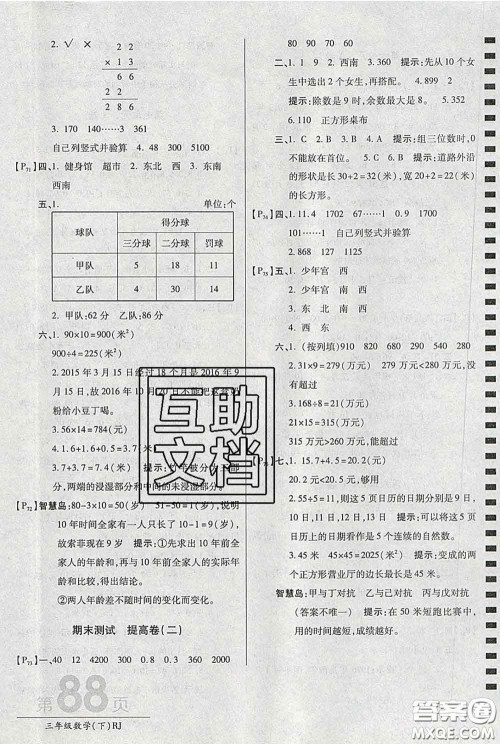 2. √ ×
2 2
× 1 3
6 6
2 2
2 8 6
3. 170 140……3 361
自己列竖式并验算 4. 48 300 5100
[P71]四、1. 健身馆 超市 2. 东北 西 3. 东南
西南
五、1. 单位:个
球队 得分球
三分球 二分球 罚球
甲队 5 18 11
乙队 4 30 14
2. 甲队:62 分 乙队:86 分
六、1. 90×10=900(米²)
900÷4=225(米²)
2. 2015 年 3 月 15 日经过 18 个月是 2016 年 9
月 15 日,故 2016 年 10 月 20 日不能把这袋奶
粉给小豆丁喝。
3. 56×14=784(元)
4. 1.6+1.6+0.5=3.7(米)
部
分,两端的浸湿部分和中间未浸湿部分。
[P72]智慧岛:80-3×10=50(岁) 51-50=1(岁)
10 年时间全家有一个家庭只长了 10-1=9(岁)
故索菲现在 9 岁 提示:①先求出 10 年前
全家的实际年龄和与 10 年前全家的实际年龄
和比较,得出结论。
②两人年龄差不随时间的变化而变化。
期末测试 提高卷(二)
[P73]一、40 12 4200 300 0.8 0.3 3600 200
第88页
三年级数学(下)RJ
80 90 70 60
二、1. 1 9 2. 西南 3. 360 提示:先从 10 个女
生中选出 2 个女生,再搭配。 4. 899 2
提示:除数是 9 时,余数最大是 8。 5. 352
6. 110 正方形桌布
三、1. C 2. B 3. B 4. A 提示:组三位数时,0
不能放在首位。 5. C 6. B 提示:道路外沿
的形状是长 30+2=32(米),宽 20+2=22(米)
的长方形。
[P74]四、1. 11.4 1702 67……1 0.9 1944
101……1 自己列竖式并验算
2. 868 127 1125
[P75]五、1. 少年宫 西
2. 少年宫 南 西
3. 东 北 南 西
4. 西 东
六、1. (按列填)910 820 680 290 540 320
2. 31×9=279(万元) 279 万<280 万,没
有超过
3. 21×15=315(万元)
21×15=315(万元)
315 万元>260 万元,能超过
[P76]七、1. 15.7+4.5=20.2(元)
2. 20.2元<50元,够
2. 65÷5=13,所以这 5 页日历的日期分别是 9
日、10 日、11 日、12 日、13 日 提示:可以将这 5 页
日历的日期看作是 5 个连续的自然数。
3. 45 米 45×45=2025(米²) 提示:变成的两
个正方形营业厅的边长最长是 45 米。
智慧岛:甲与丁对抗 乙与己对抗 丙与戊对抗
(答案不唯一) 提示:在 50 米短跑比赛中,
用的时间越短,成绩越好。
互助
文档
答案圈
MXQE.COM